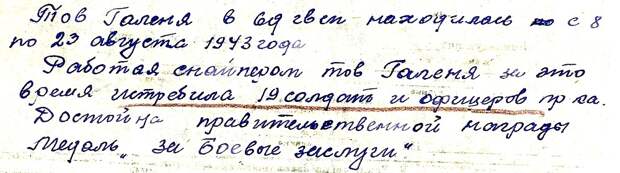 Тов Галеня в 6д гвсп находилась с 8
по 23 августа 1943 года
Работая снайпером тов Галеня за это
время истребила 19 солдат и офицеров пр ка.
Достойна правительственной награды
Медаль „за боевые заслуги"